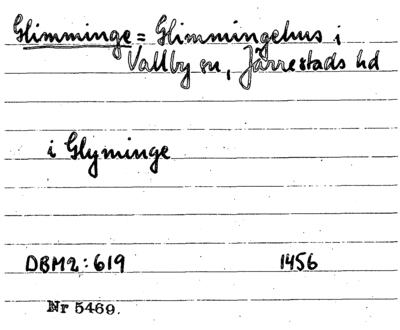 Glimminge = Glimmingehus i
Vallby sn, Järrestads hd
i Glyminge
DBM2:619 1456
Nr 5469.